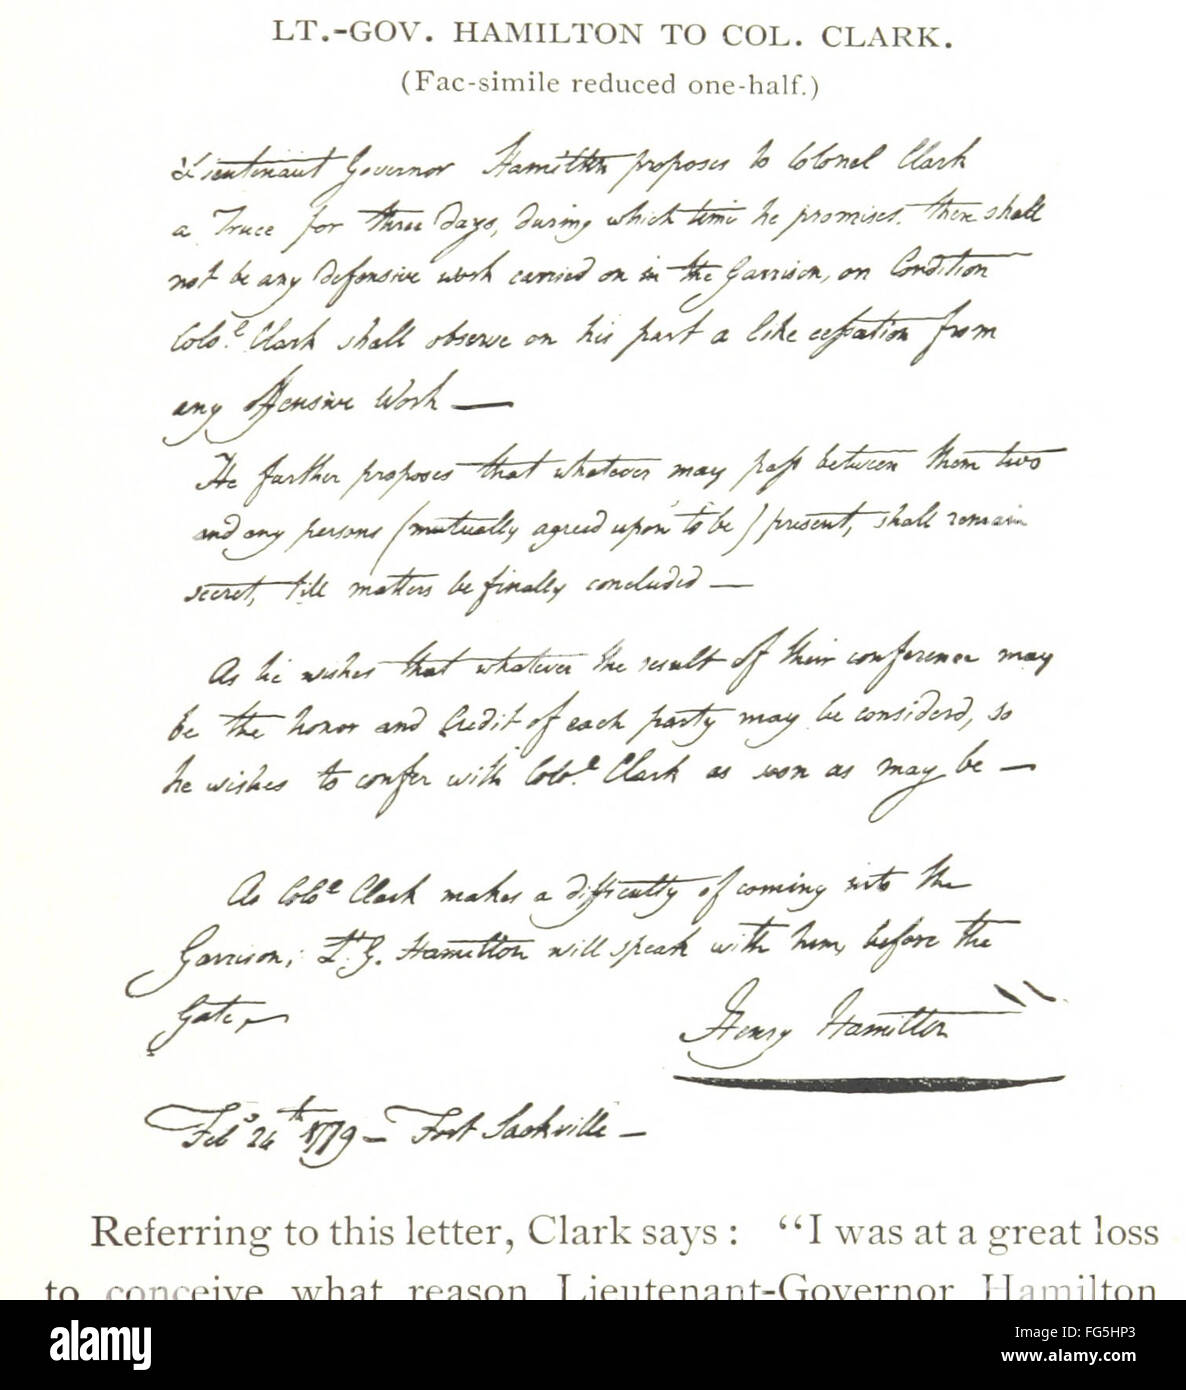 LT.-GOV. HAMILTON TO COL. CLARK.
(Fac-simile reduced one-half.)
Lieutenant Governor Hamilton proposes to Colonel Clark
a Truce for three days, during which time he promises there shall
not be any defensive work carried on in the Garrison, on Condition
Colo.l Clark shall observe on his part a like cessation from
any offensive Work —
He further proposes that whatever may pass between them two
and any persons (mutually agreed upon to be) present, shall remain
secret, till matters be finally concluded —
As he wishes that whatever the result of their conference may
be the honor and Credit of each party may be considerd, so
he wishes to confer with Colo.l Clark as soon as may be —
As Colo.l Clark makes a difficulty of coming into the
Garrison, Lt. G. Hamilton will speak with him, before the
Gate,
Henry Hamilton
Feb. 24th 1779 — Fort Sackville —
Referring to this letter, Clark says : “I was at a great loss
to conceive what reason Lieutenant-Governor Hamilton
alamy
Image ID: FG5HP3
www.alamy.com